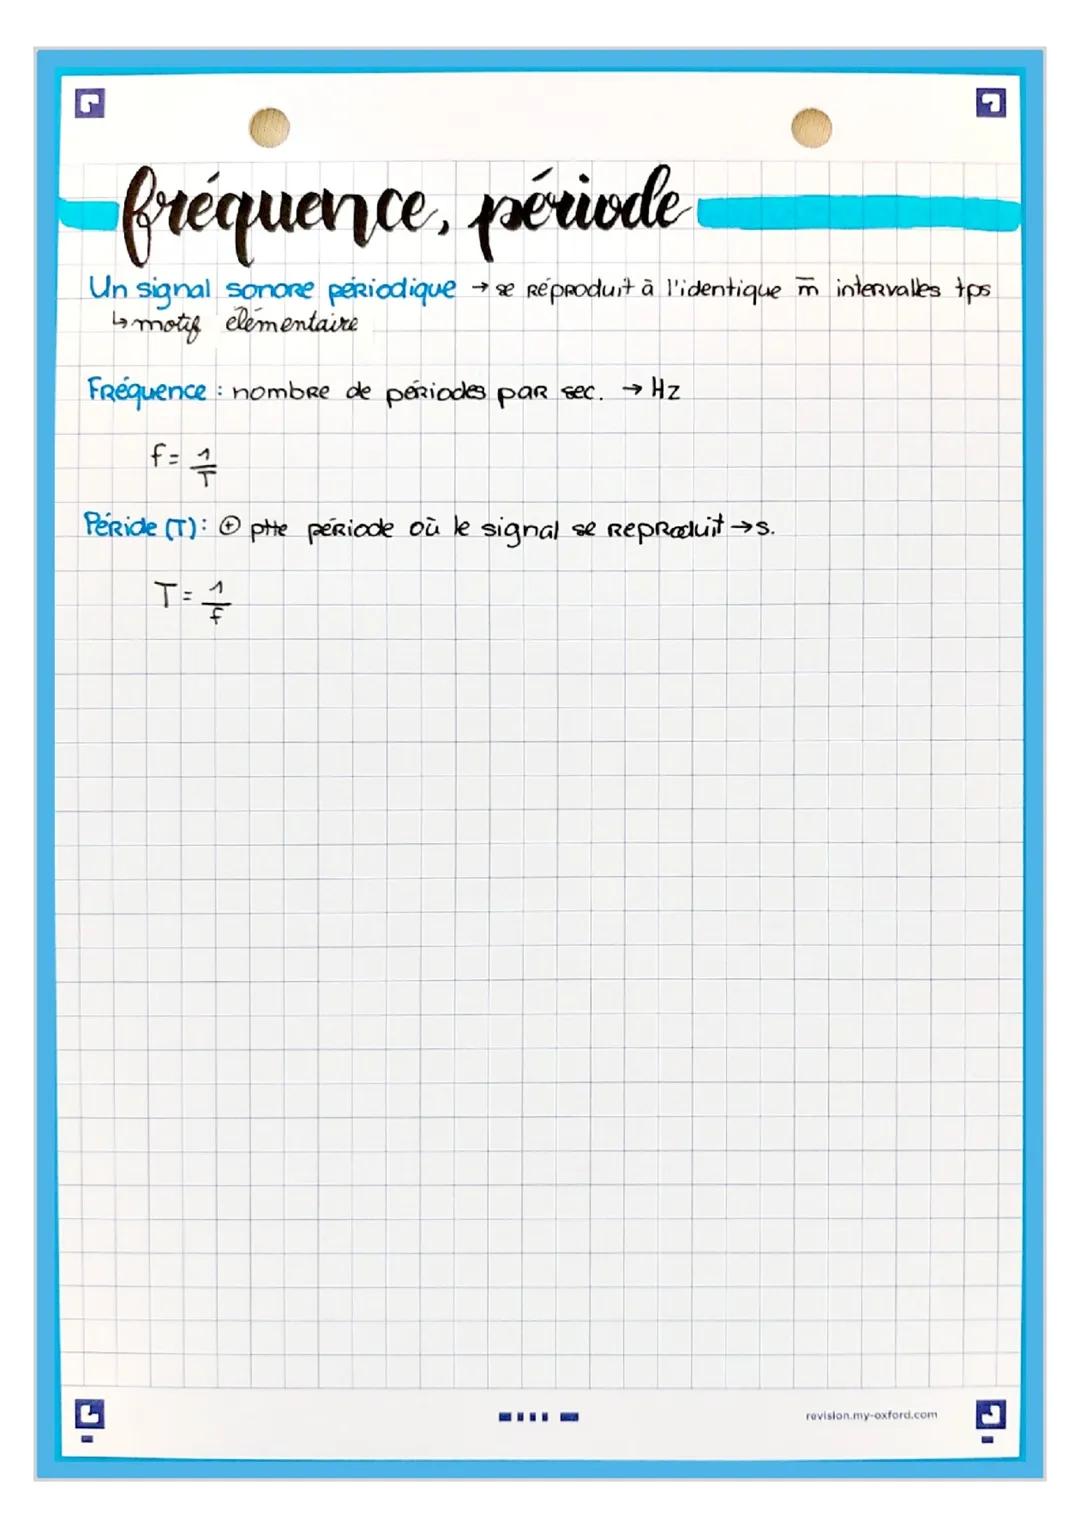 fréquence, période
Un signal sonore périodique → se réproduit à l'identique m̅ intervalles tps
↳ motif élémentaire
Fréquence : nombre de périodes par sec. → Hz
f = 1/T
Péride (T) : ⊕ ptte période où le signal se reproduit → s.
T = 1/f
revision.my-oxford.com